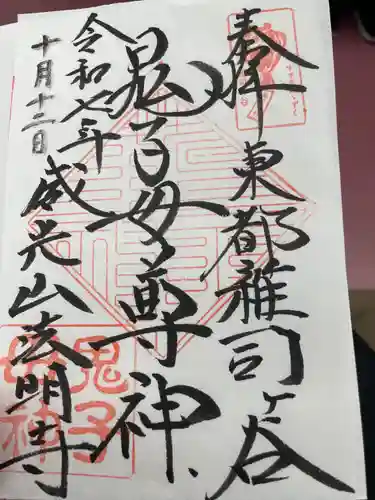 奉拝
東都雑司ヶ谷
鬼子母尊神
令和七年
十月十二日
威光山法明寺
鬼子母神